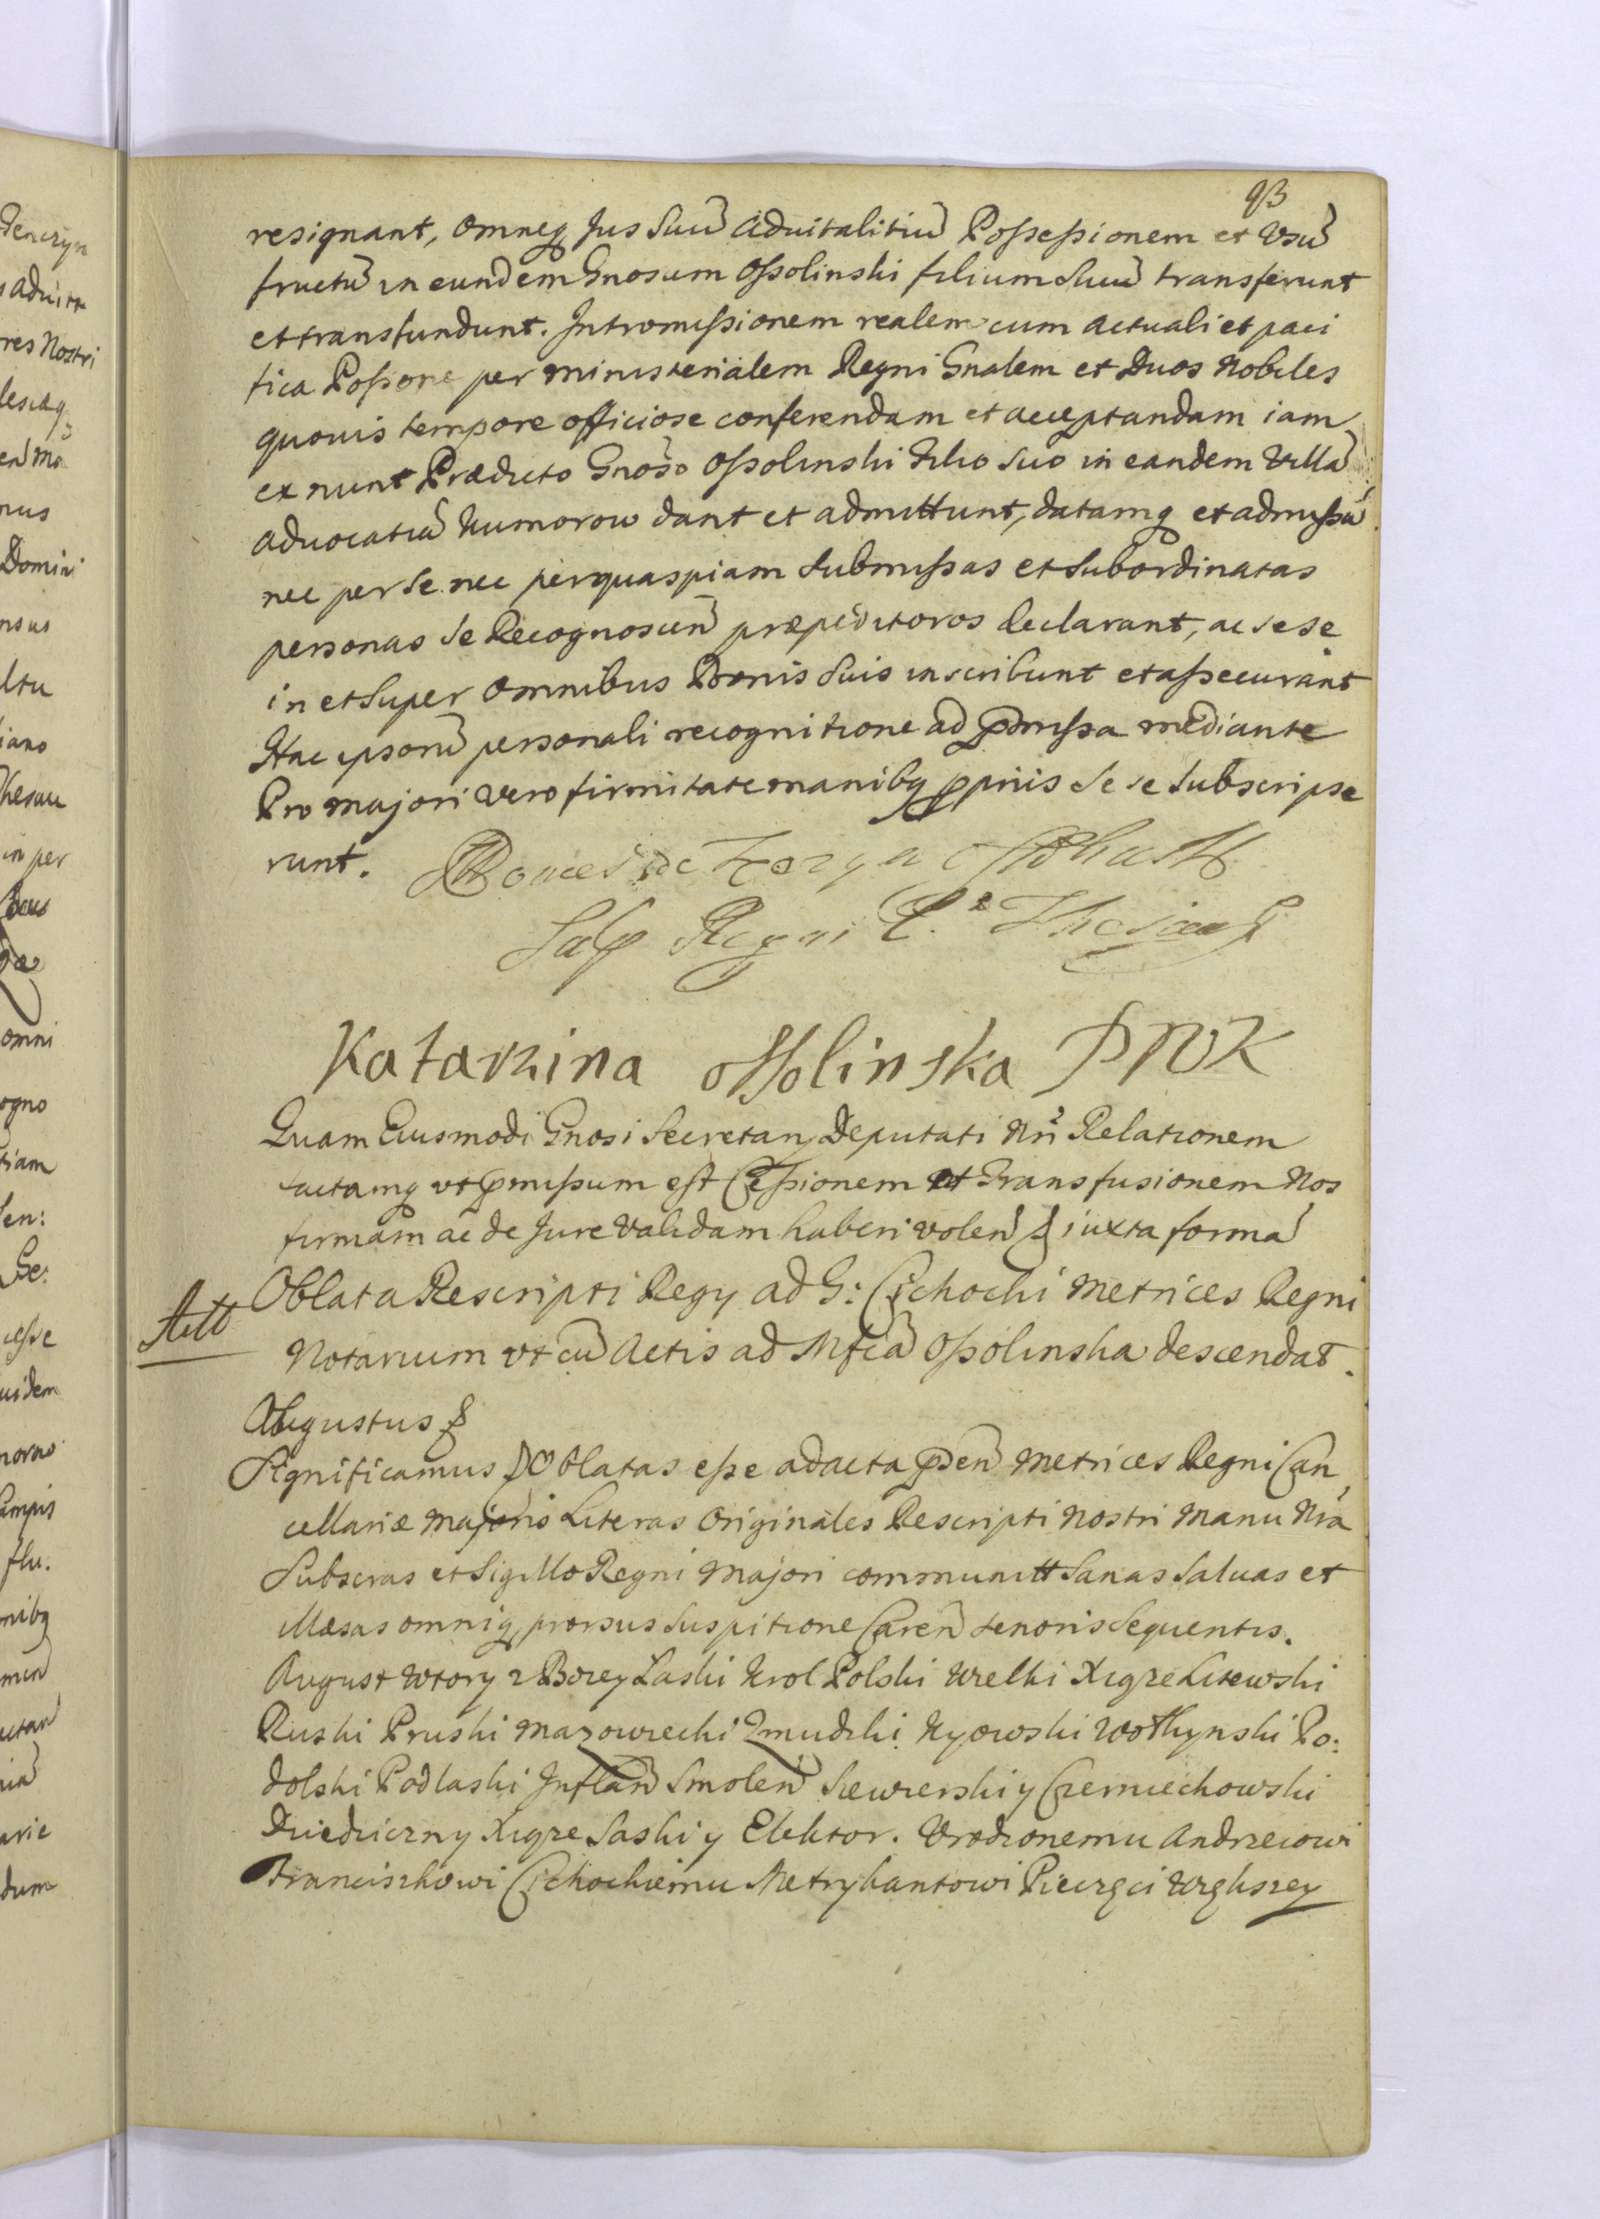 93
resignant, omneq Jus Suu Aduitalitiu Possessionem et Vsu
fructu in eundem Gnosum Ossolinski filium Suu transferunt
et transfundunt. Intromissionem realem cum actuali et paci
fica Possone per ministerialem Regni Gnalem et Duos Nobiles
quouis tempore officiose conferendam et acceptandam iam
ex nunt Prædicto Gnoso Ossolinski filio suo in eandem Villa
aduocatia Humorow dant et admittunt, datamq et admissa
nec per se nec perquaspiam submissas et subordinatas
personas se Recognoscen præpeditoros declarant, ac sese
in et super omnibus Bonis suis inscribunt et assecurant
Hac ipsoru personali recognitione ad pmissa mediante
Pro majori vero firmitate manibq ppriis sese subscripse
runt.
Regni
Katarzina Ossolinska PWK
Quam Eiusmodi Gnosi Secretary Deputati Nri Relationem
factamq vt pmissum est Cessionem et Transfusionem Nos
firmam ac de Jure validam haberi volen iuxta forma
Oblata Rescripti Regy ad G: Cichocki Metrices Regni
Notarium vt cu Actis ad Mfca Ossolinska descendat.
Augustus
Significamus Oblatas esse ad acta pden Metrices Regni Can
cellariæ Majoris Literas Originales Rescripti Nostri Manu Nra
Subscras et Sigillo Regni Majori communitt Sanas Saluas et
illæsas omniq prorsus suspitione Caren tenoris sequentis.
August Wtory z Bozey Laski Krol Polski Wielki Xiąze Litewski
Ruski Pruski Mazowiecki Zmudzki Kyowski Wołhynski Po:
dolski Podlaski Inflan Smolen Siewierski y Czerniechowski
Dziedziczny Xiąze Saski y Elektor. Vrodzonemu Andrzeiowi
Franciszkowi Cichockiemu Metrykantowi Pieczęci Większey